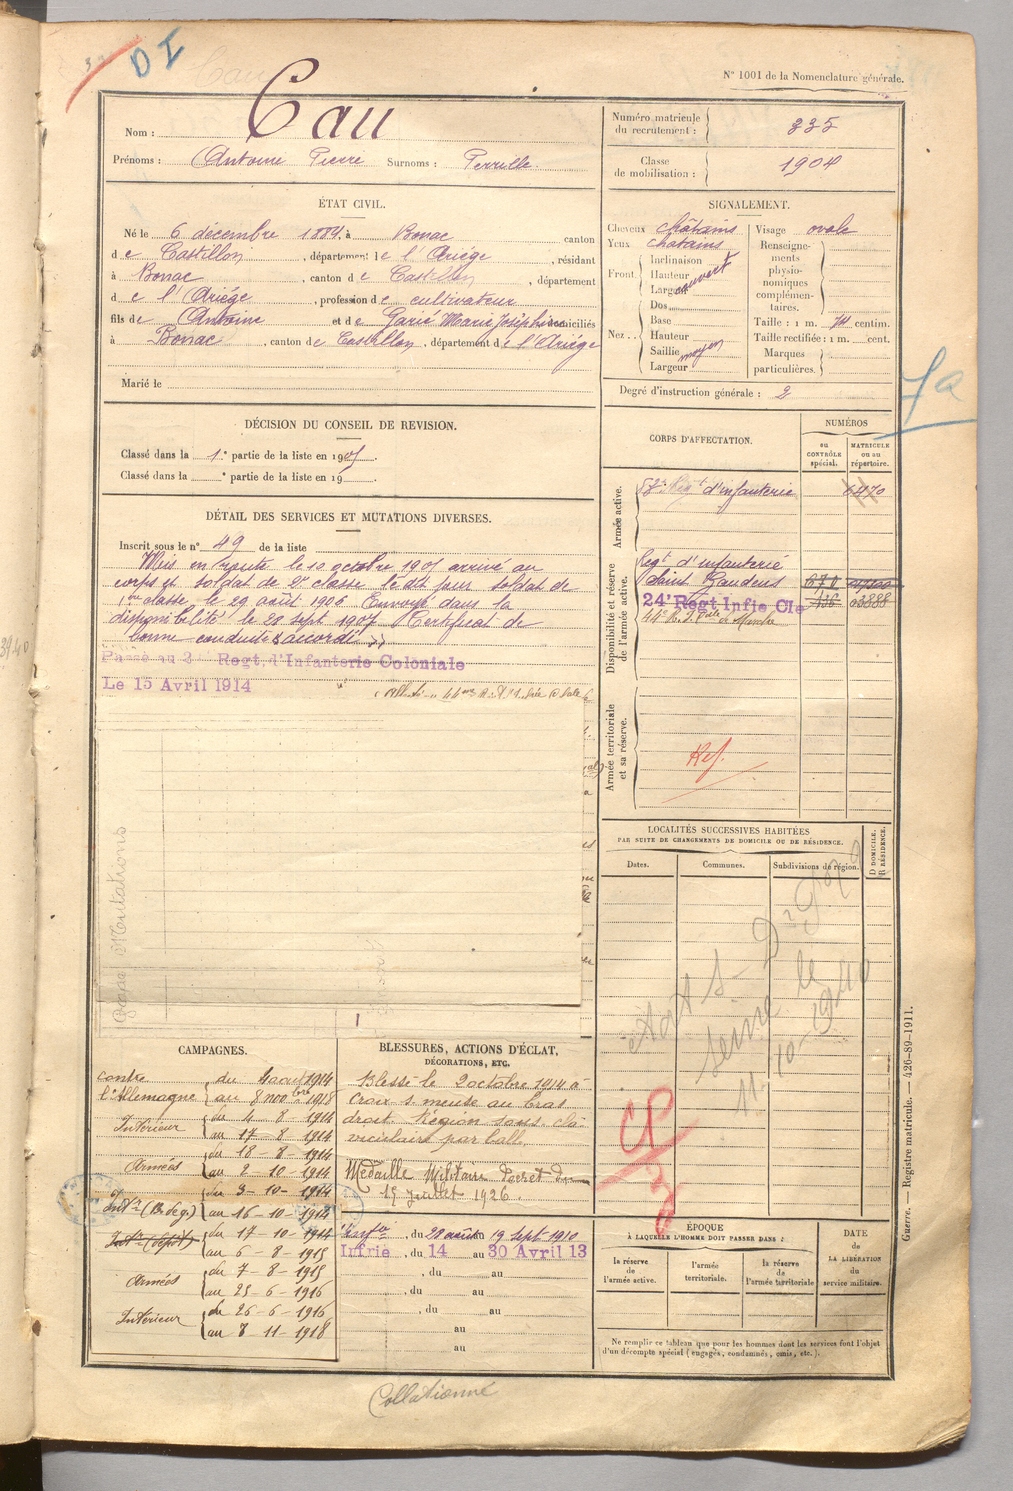 DI
N° 1001 de la Nomenclature générale.
Nom : Cau
Prénoms : Antoine Pierre Surnoms :
Numéro matricule du recrutement : 335
Classe de mobilisation : 1904
ÉTAT CIVIL.
Né le 6 décembre 1884, à Bonac canton
de Castillon, département de l'Ariége, résidant
à Bonac, canton de Castillon, département
de l'Ariége, profession de cultivateur
fils de Antoine et de Garié Marie Joséphine domiciliés
à Bonac, canton de Castillon, département de l'Ariége
Marié le
SIGNALEMENT.
Cheveux châtains
Yeux chatains
Front. Inclinaison
Hauteur
Largeur
couvert
Nez.. Dos
Base
Hauteur
Saillie
Largeur
moyen
Visage ovale
Renseignements physionomiques complémentaires.
Taille : 1 m. 74 centim.
Taille rectifiée : 1 m. cent.
Marques particulières.
Degré d'instruction générale : 2
DÉCISION DU CONSEIL DE REVISION.
Classé dans la 1e partie de la liste en 1905.
Classé dans la e partie de la liste en 19 .
DÉTAIL DES SERVICES ET MUTATIONS DIVERSES.
Inscrit sous le n° 49 de la liste
Mis en route le 10 octobre 1905 arrivé au
corps et soldat de 2e classe le dit jour soldat de
1ère classe le 29 août 1906 Envoyé dans la
disponibilité le 28 sept 1907 Certificat de
bonne conduite "accordé"
Passé au 2 Regt. d'Infanterie Coloniale
Le 15 Avril 1914
CORPS D'AFFECTATION.
NUMÉROS
au CONTRÔLE spécial.
MATRICULE ou au répertoire.
Armée active.
Regt d'infanterie
6470
Disponibilité et réserve de l'armée active.
Regt d'infanterie
Saint Gaudens
24e Regt Infie Cle
436 03888
Armée territoriale et sa réserve.
Ref.
LOCALITÉS SUCCESSIVES HABITÉES
PAR SUITE DE CHANGEMENTS DE DOMICILE OU DE RÉSIDENCE.
Dates.
Communes.
Subdivisions de région.
D DOMICILE.
R RÉSIDENCE.
11-10-1940
CAMPAGNES.
contre l'Allemagne du 4 août 1914
au 8 nobre 1918
Intérieur du 4 - 8 - 1914
au 17 - 8 - 1914
Armées du 18 - 8 - 1914
au 2 - 10 - 1914
du 3 - 10 - 1914
au 16 - 10 - 1914
du 17 - 10 - 1914
au 6 - 8 - 1915
Armées du 7 - 8 - 1915
au 25 - 6 - 1916
Intérieur du 26 - 6 - 1916
au 7 - 11 - 1918
BLESSURES, ACTIONS D'ÉCLAT,
DÉCORATIONS, ETC.
Blessé le 2 octobre 1914 à
Croix s. meuse au bras
droit Région sous. cla-
viculaire par balle.
Médaille Militaire Décret du
15 Juillet 1926.
, du 28 août au 19 sept 1910
Infrie , du 14 au 30 Avril 13
, du au
, du au
, du au
au
au
ÉPOQUE
À LAQUELLE L'HOMME DOIT PASSER DANS :
la réserve de l'armée active.
l'armée territoriale.
la réserve de l'armée territoriale
DATE
de
LA LIBÉRATION
du
service militaire.
Ne remplir ce tableau que pour les hommes dont les services font l'objet
d'un décompte spécial (engagés, condamnés, omis, etc.).
Guerre. — Registre matricule. — 426-89-1911.
Collationné